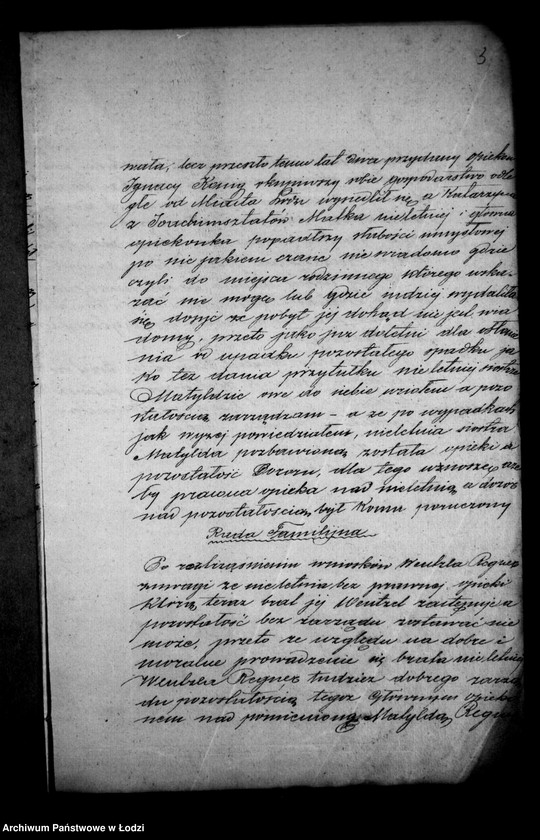 3
mata, lecz przeszło temu lat dwa przydany opiekun
Ignacy kupiwszy sobie gospodarstwo odle-
głe od Miasta wynosił się, a Katarzyna
z Matka nieletniej i główna
opiekunka popadłszy słabości umysłowej
po nie jakiem czasie niewiadomo gdzie
czyli do miejsca rodzinnego którego wska-
zać nie mogę lub gdzie indziej wydaliła
się, dosyć że pobyt jej dokąd nie jest wia-
domy, przeto jako już doletni dla
nia od upadku pozostałego spadku ja-
ko też dania przytułku nieletniej siostrze
Matyldzie one do siebie wziąłem a pozo-
stałością zarządzam – a że po wypadkach
jak wyżej powiedziałem, nieletnia siostra
Matylda pozbawioną została opieki a
pozostałość Dozoru, dla tego wznoszę aże-
by prawna opieka nad nieletnią a dozór
nad pozostałością był komu powierzony
Rada Familijna
Po rozstrząśnieniu wniosków Wentzla
zuwagi że nieletnia bez prawnej opieki
którą teraz brat jej Wentzel zastępuje a
pozostałość bez zarządu zostawać nie
może, przeto ze względu na dobre i
moralne prowadzenie się brata nieletniej
Wentzla tudzież dobrego zarzą-
du pozostałością tegoż Głównym opieku-
nem nad pomienioną Matyldą
Archiwum Państwowe w Łodzi
Archiwum Państwowe w Łodzi